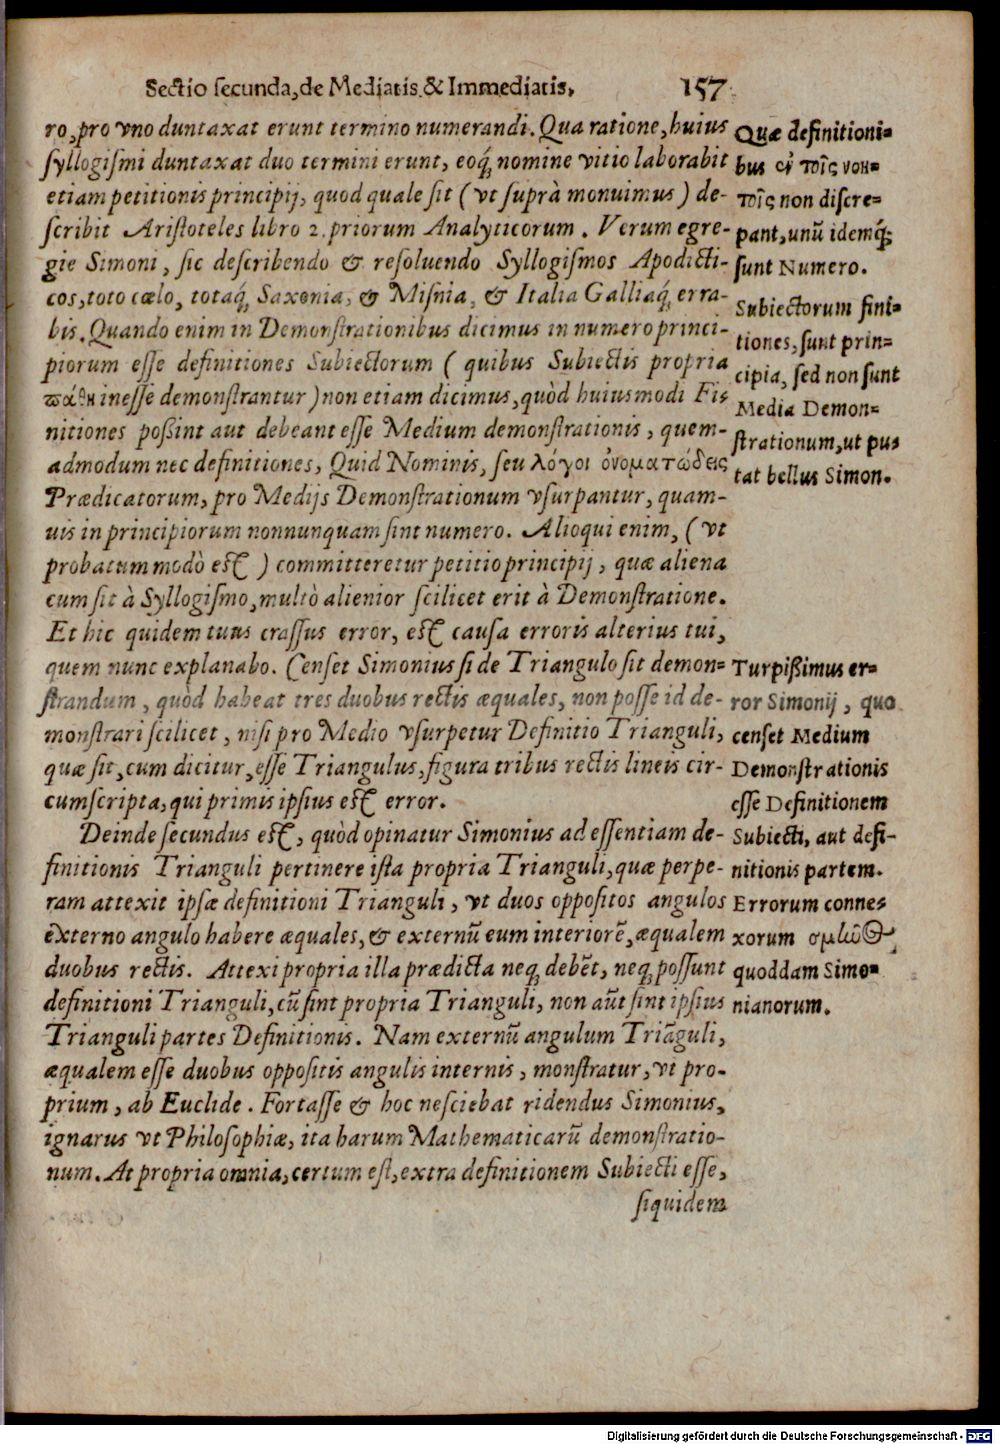 Sectio secunda, de Mediatis & Immediatis, 157
ro, pro vno duntaxat erunt termino numerandi. Qua ratione, huius
syllogismi duntaxat duo termini erunt, eoq́; nomine vitio laborabit
etiam petitionis principij, quod quale sit ( vt suprà monuimus ) de-
scribit Aristoteles libro 2. priorum Analyticorum. Verum egre-
gie Simoni, sic describendo & resoluendo Syllogismos Apodicti-
cos, toto cœlo, totaq́; Saxonia, & Misnia, & Italia Galliaq́; erra-
bis. Quando enim in Demonstrationibus dicimus in numero princi-
piorum esse definitiones Subiectorum ( quibus Subiectis propria
πάθη inesse demonstrantur ) non etiam dicimus, quòd huiusmodi Fi-
nitiones poßint aut debeant esse Medium demonstrationis, quem-
admodum nec definitiones, Quid Nominis, seu λόγοι ὀνοματώδεις
Prædicatorum, pro Medijs Demonstrationum vsurpantur, quam-
uis in principiorum nonnunquam sint numero. Alioqui enim, ( vt
probatum modò est ) committeretur petitio principij, quæ aliena
cum sit à Syllogismo, multò alienior scilicet erit à Demonstratione.
Et hic quidem tuus crassus error, est causa erroris alterius tui,
quem nunc explanabo. Censet Simonius si de Triangulo sit demon-
strandum, quòd habeat tres duobus rectis æquales, non posse id de-
monstrari scilicet, nisi pro Medio vsurpetur Definitio Trianguli,
quæ sit, cum dicitur, esse Triangulus, figura tribus rectis lineis cir-
cumscripta, qui primis ipsius est error.
Deinde secundus est, quòd opinatur Simonius ad essentiam de-
finitionis Trianguli pertinere ista propria Trianguli, quæ perpe-
ram attexit ipsæ definitioni Trianguli, vt duos oppositos angulos
externo angulo habere æquales, & externū eum interiorē, æqualem
duobus rectis. Attexi propria illa prædicta neq; debēt, neq; possunt
definitioni Trianguli, cū sint propria Trianguli, non aūt sint ipsius
Trianguli partes Definitionis. Nam externū angulum Triāguli,
æqualem esse duobus oppositis angulis internis, monstratur, vt pro-
prium, ab Euclide. Fortasse & hoc nesciebat ridendus Simonius,
ignarus vt Philosophiæ, ita harum Mathematicarū demonstratio-
num. At propria omnia, certum est, extra definitionem Subiecti esse,
siquidem
Quæ definitioni-
bus ἐν τοῖς νοη-
τοῖς non discre-
pant, unū idemq́;
sunt Numero.
Subiectorum fini-
tiones, sunt prin-
cipia, sed non sunt
Media Demon-
strationum, ut pu-
tat bellus Simon.
Turpißimus er-
ror Simonij, quo
censet Medium
Demonstrationis
esse Definitionem
Subiecti, aut defi-
nitionis partem.
Errorum conne-
xorum
quoddam Simo-
nianorum.
Digitalisierung gefördert durch die Deutsche Forschungsgemeinschaft - DFG